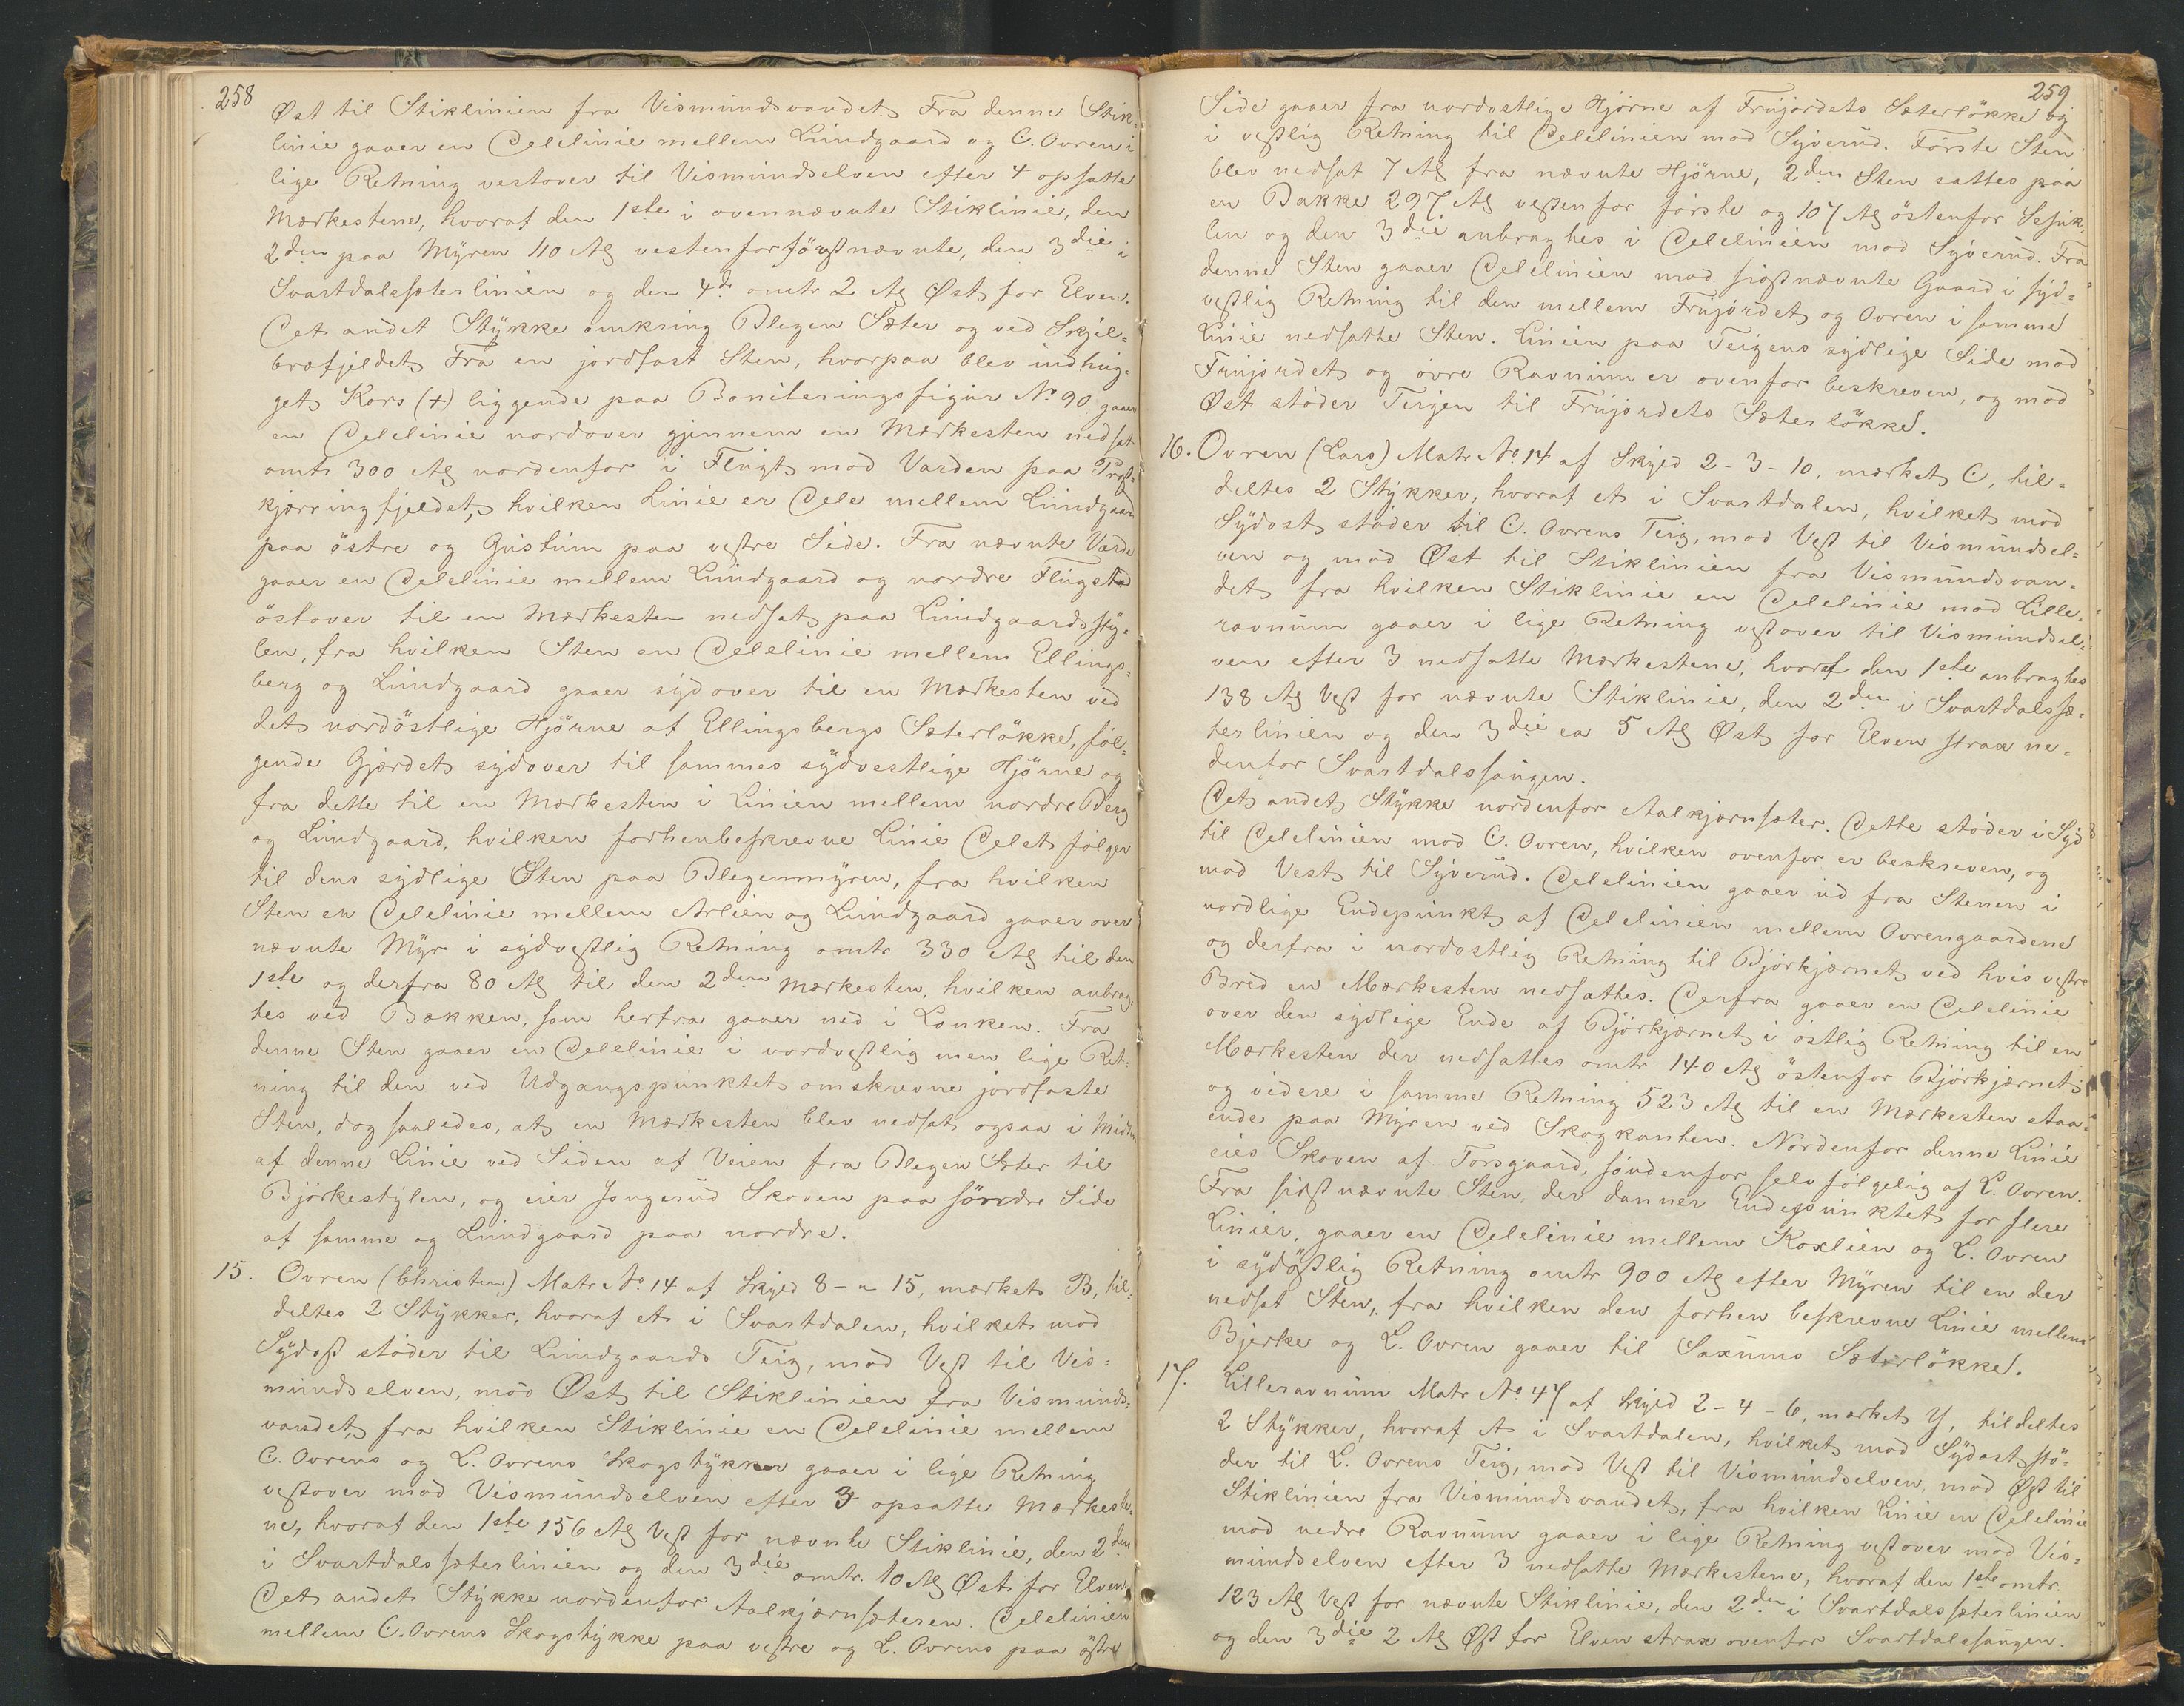 258
Øst til Stiklinien fra Vismundsvandet. Fra denne Stik-
linie gaaer en Delelinie mellem Lundgaard og C. Ovren i
lige Retning vestover til Vismundselven efter 4 opsatte
Mærkestene, hvoraf den 1ste i ovennævnte Stiklinie, den
2den paa Myren 110 Al vestenfor førstnævnte, den 3die i
Svartdalssæterlinien og den 4de omtr 2 Al Øst for Elven.
Det andet Stykke omkring Blegen Sæter og ved Skjel-
bræfjeldet. Fra en jordfast Sten, hvorpaa blev indhug-
get Kors (+) liggende paa Boniteringsfigur No 90 gaaer
en Delelinie nordover gjennem en Mærkesten nedsat
omtr 300 Al nordenfor i Flugt mod Varden paa Præst-
kjærringfjeldet, hvilken Linie er Dele mellem Lundgaard
paa østre og Gustum paa vestre Side. Fra nævnte Varde
gaaer en Delelinie mellem Lundgaard og nordre Flugstad
østover til en Mærkesten nedsat paa Lundgaardsstÿ-
len, fra hvilken Sten en Delelinie mellem Ellings-
berg og Lundgaard gaaer sydover til en Mærkesten ved
det nordøstlige Hjørne af Ellingsbergs Sæterløkke, føl-
gende Gjærdet sydover til sammes sydvestlige Hjørne og
fra dette til en Mærkesten i Linien mellem nordre Berg
og Lundgaard, hvilken forhenbeskrevne Linie Delet følger
til dens sydlige Sten paa Blegenmyren, fra hvilken
Sten en Delelinie mellem Arlien og Lundgaard gaaer over
nævnte Myr i sydvestlig Retning omtr 330 Al til den
1ste og derfra 80 Al til den 2den Mærkesten, hvilken anbrag-
tes ved Bækken, som herfra gaaer ned i Lonken. Fra
denne Sten gaaer en Delelinie i nordvestlig men lige Ret-
ning til den ved Udgangspunktet omskrevne jordfaste
Sten, dog saaledes, at en Mærkesten blev nedsat ogsaa i Midten
af denne Linie ved Siden af Veien fra Blegen Sæter til
Bjørkestylen, og eier Jongerud Skoven paa søndre Side
af samme og Lundgaard paa nordre.
15. Ovren (Christen) Matr No. 14 af Skyld 8 - „ 15, mærket B, til-
deltes 2 Stykker, hvoraf et i Svartdalen, hvilket mod
Sydost støder til Lundgaards Teig, mod Vest til Vis-
mundselven, mod Øst til Stiklinien fra Vismunds-
vandet, fra hvilken Stiklinie en Delelinie mellem
C. Ovrens og L. Ovrens Skogstykker gaaer i lige Retning
vestover mod Vismundselven efter 3 opsatte Mærkeste-
ne, hvoraf den 1ste 156 Al Vest for nævnte Stiklinie, den 2den
i Svartdalssæterlinien og den 3die omtr. 10 Al Øst for Elven.
Det andet Stykke nordenfor Aalkjærnsæteren. Delelinien
mellem C. Ovrens Skogstykke paa vestre og L. Ovrens paa østre
259
Side gaaer fra nordostlige Hjørne af Frujordets Sæterløkke og
i vestlig Retning til Delelinien mod Syverud. Første Sten
blev nedsat 7 Al fra nævnte Hjørne, 2den Sten sattes paa
en Bakke 297 Al vestenfor første og 107 Al østenfor
len og den 3die anbragtes i Delelinien mod Syverud. Fra
denne Sten gaaer Delelinien mod sidstnævnte Gaard i syd-
vestlig Retning til den mellem Frujordet og Ovren i samme
Linie nedsatte Sten. Linien paa Teigens sydlige Side mod
Frujordet og øvre Ravnum er ovenfor beskreven, og mod
Øst støder Teigen til Frujordets Sæterløkke.
16. Ovren (Lars) Matr No 14 af Skyld 2 - 3 - 10, mærket C, til-
deltes 2 Stykker, hvoraf et i Svartdalen, hvilket mod
Sydost støder til C. Ovrens Teig, mod Vest til Vismundsel-
ven og mod Øst til Stiklinien fra Vismundsvan-
det, fra hvilken Stiklinie en Delelinie mod Lille-
ravnum gaaer i lige Retning vestover til Vismundsel-
ven efter 3 nedsatte Mærkestene, hvoraf den 1ste anbragtes
138 Al Vest for nævnte Stiklinie, den 2den i Svartdalssæ-
terlinien og den 3die ca 5 Al Øst for Elven strax ne-
denfor Svartdalssaugen.
Det andet Stykke nordenfor Aalkjærnsæter. Dette støder i Syd
til Delelinien mod C. Ovren, hvilken ovenfor er beskreven, og
mod Vest til Syverud. Delelinien gaaer ud fra Stenen i
nordlige Endepunkt af Delelinien mellem Ovrengaardene
og derfra i nordostlig Retning til Bjørkjærnet, ved hvis vestre
Bred en Mærkesten nedsattes. Derfra gaaer en Delelinie
over den sydlige Ende af Bjørkjærnet i østlig Retning til en
Mærkesten der nedsattes omtr 140 Al østenfor Bjørkjærnet,
og videre i samme Retning 523 Al til en Mærkesten staa-
ende paa Myren ved Skogkanten. Nordenfor denne Linie
eies Skoven af Torsgaard, søndenfor selv følgelig af L. Ovren.
Fra sidstnævnte Sten, der danner Endepunktet for flere
Linier, gaaer en Delelinie mellem Koxlien og L. Ovren
i sydøstlig Retning omtr 900 Al efter Myren til en der
nedsat Sten, fra hvilken den forhen beskrevne Linie mellem
Bjerke og L. Ovren gaaer til Saxums Sæterløkke.
17. Lilleravnum Matr No. 47 af Skyld 2 - 4 - 6, mærket Y, tildeltes
2 Stykker, hvoraf et i Svartdalen, hvilket mod Sydost stø-
der til L. Ovrens Teig, mod Vest til Vismundselven, mod Øst til
Stiklinien fra Vismundsvandet, fra hvilken Linie en Delelinie
mod nedre Ravnum gaaer i lige Retning vestover mod Vis-
mundselven efter 3 nedsatte Mærkestene, hvoraf den 1ste omtr.
123 Al Vest for nævnte Stiklinie, den 2den i Svartdalssæterlinien
og den 3die 2 Al Øst for Elven strax ovenfor Svartdalssaugen.